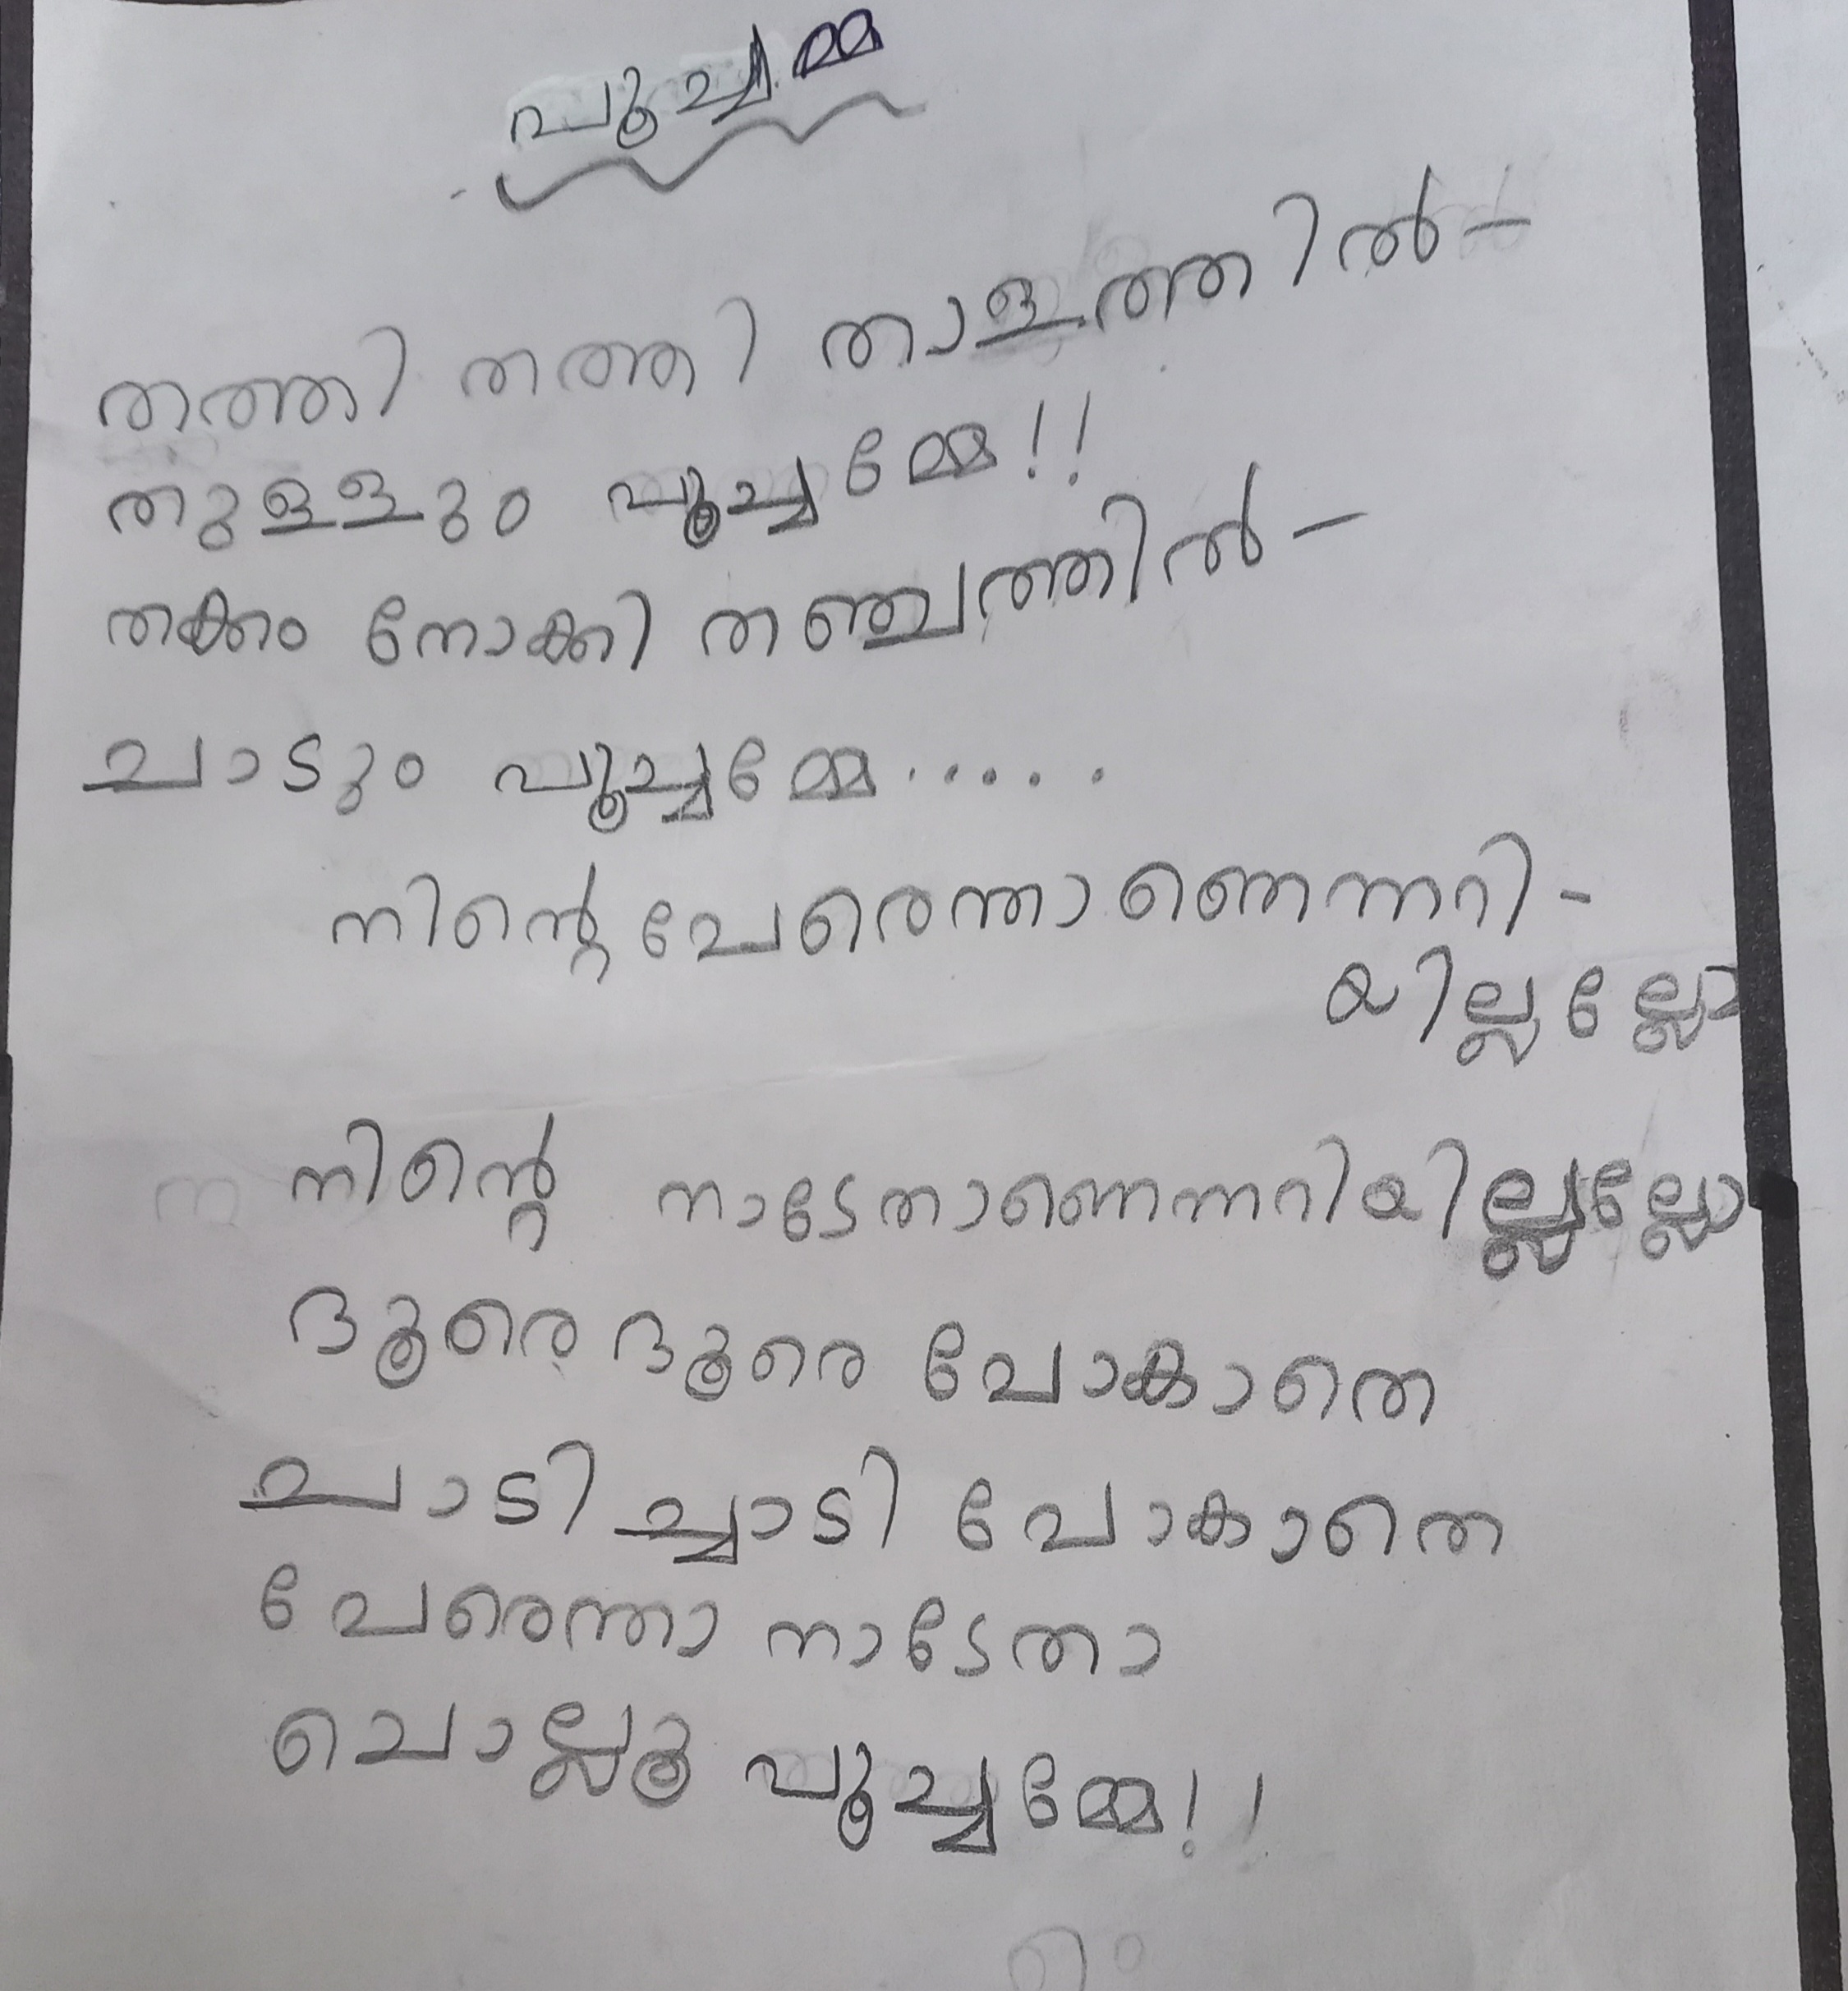 പൂച്ചമ്മ
തത്തി തത്തി താളത്തിൽ-
തുള്ളും പൂച്ചമ്മേ!!
തക്കം നോക്കി തഞ്ചത്തിൽ-
ചാടും പൂച്ചമ്മേ......
നിന്റെ പേരെന്താണെന്നറി-
യില്ലല്ലോ
നിന്റെ നാടേതാണെന്നറിയില്ലല്ലോ
ദൂരെ ദൂരെ പോകാതെ
ചാടി ച്ചാടി പോകാതെ
പേരെന്താ നാടേതാ
ചൊല്ലൂ പൂച്ചമ്മേ!!